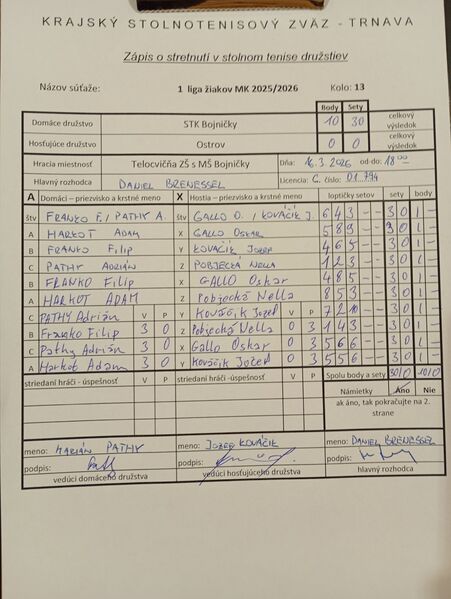 KRAJSKÝ STOLNOTENISOVÝ ZVÄZ - TRNAVA
Zápis o stretnutí v stolnom tenise družstiev
Názov súťaže: 1 liga žiakov MK 2025/2026 Kolo: 13
Body Sety
Domáce družstvo STK Bojničky 10 30 celkový výsledok
Hosťujúce družstvo Ostrov 0 0 celkový výsledok
Hracia miestnosť Telocvičňa ZŠ s MŠ Bojničky Dňa: 16.3.2026 od do: 18 00
Hlavný rozhodca DANIEL BRENESSEL Licencia: C. číslo: 01794
A Domáci – priezvisko a krstné meno X Hostia – priezvisko a krstné meno loptičky setov sety body
štv FRANKO F. / PATHY A. štv GALLO O. / KOVÁČIK J. 6 4 3 - - 3 0 1 -
A HARKOT ADAM X GALLO OSKAR 5 8 9 - - 3 0 1 -
B FRANKO Filip Y KOVÁČIK JOZEF 4 6 5 - - 3 0 1 -
C PATHY ADRIÁN Z POBJECKÁ NELLA 1 2 3 - - 3 0 1 -
B FRANKO Filip X GALLO Oskar 4 8 5 - - 3 0 1 -
A HARKOT ADAM Z Pobjecká Nella 8 5 3 - - 3 0 1 -
C PATHY Adrián V P Y Kováčik Jozef V P 7 2 10 - - 3 0 1 -
B Franko Filip 3 0 Z Pobjecká Nella 0 3 1 4 3 - - 3 0 1 -
C Pathy Adrián 3 0 X Gallo Oskar 0 3 5 6 6 - - 3 0 1 -
A Harkot Adam 3 0 Y Kováčik Jozef 0 3 5 5 6 - - 3 0 1 -
striedaní hráči - úspešnosť V P striedaní hráči - úspešnosť V P Spolu body a sety 30/0 10/0
Námietky Áno Nie
ak áno, tak pokračujte na 2. strane
meno: MARIÁN PATHY meno: JOZEF KOVÁČIK meno: DANIEL BRENESSEL
podpis: podpis: podpis:
vedúci domáceho družstva vedúci hosťujúceho družstva hlavný rozhodca